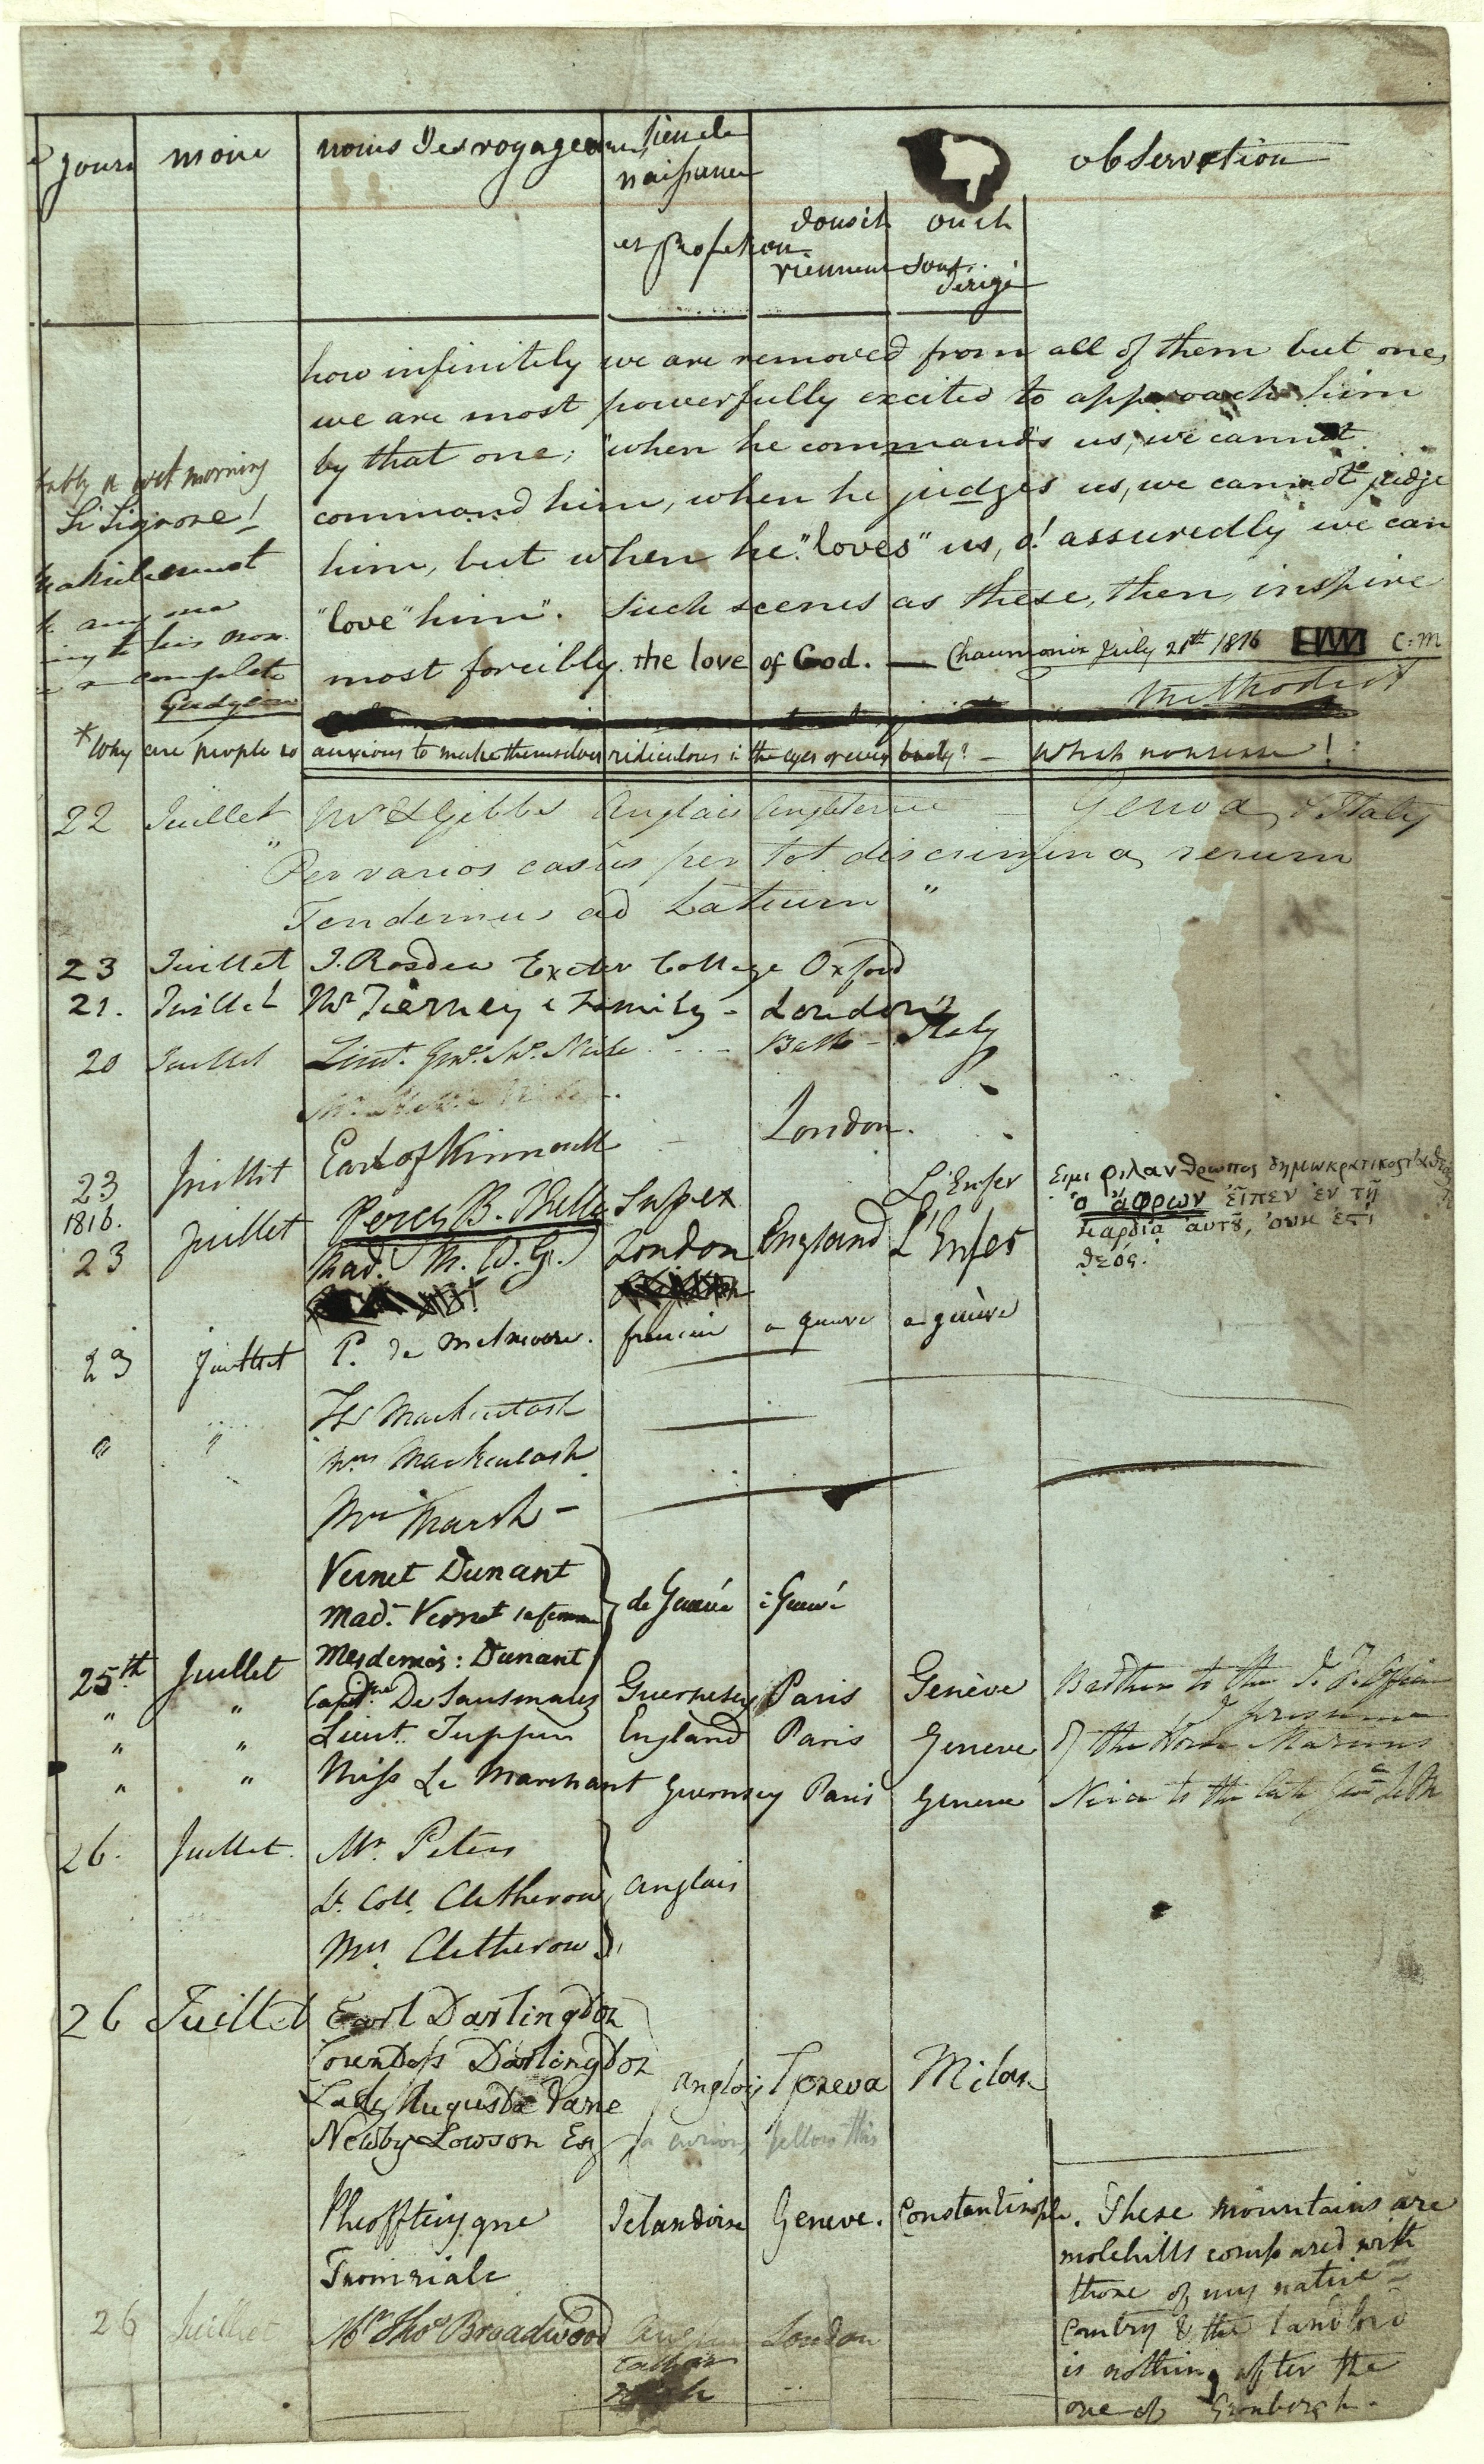 jours mois noms des voyageurs lieu de naissance et profession d'ou ils viennent ou ils sont dirigé observation
how infinitely we are removed from all of them but one,
we are most powerfully excited to approach him
by that one; "when he commands us, we cannot
command him, when he judges us, we cannot judge
him, but when he "loves" us, o! assuredly we can
"love" him". Such scenes as these, then, inspire
most forcibly the love of God. — Chaumonix July 21st 1816 C: M
Methodist
a wet morning
Si Signore!
complete
*Why are people so anxious to make themselves ridiculous in the eyes of every body? — What nonsense!
22 Juillet Mr Gibbs Anglais Angleterre — Genoa & Italy
" Per varios casûs per tot discrimina rerum
Tendemus ad Latium "
23 Juillet J. Rosdew Exeter College Oxford
21. Juillet Mr Tierney & Family - London
20 Juillet Lieut. Genl. Bath - Italy
23 Juillet Earl of Kinnoull London.
1816.
23 Juillet Percy B. Shelley Sussex L'Enfer Ειμι φιλανθρωπος δημωκρατικος τ' αθεος τε
Mad. M. W. G. London England L'Enfer
ὁ ἄφρων εἶπεν ἐν τῇ
καρδίᾳ αὑτοῦ, οὐκ ἐστι
θεός.
23 Juillet P. de français a genève a genève
" " Mackintosh
Mrs Mackintosh
Mrs Marsh -
Vernet Dunant
Mad. Vernet sa femme de Genève à Genève
Mesdemois: Dunant
25th Juillet Captne De Sausmarez Guernesey Paris Genève Brother to the
I presume
" " Lieut. Tupper England Paris Geneve of the Horse Marines
" " Miss Le Marchant Guernsey Paris Geneve Niece to the late Genl Le M
26. Juillet. Mr. Peters
Lt. Coll. Clitherow anglais
Mrs. Clitherow
26 Juillet Earl Darlington
Countess Darlington
Lady Augusta Vane anglois Geneva Milan
Newby Lowson Esq a curious fellow this
Pheofftiyqne Islandoise Geneve. Constantinople. These mountains are
Tnomriale
molehills compared with
those of my native
Country & the landlord
is nothing after the
one of
26 Juillet Mr Thos Broadwood London